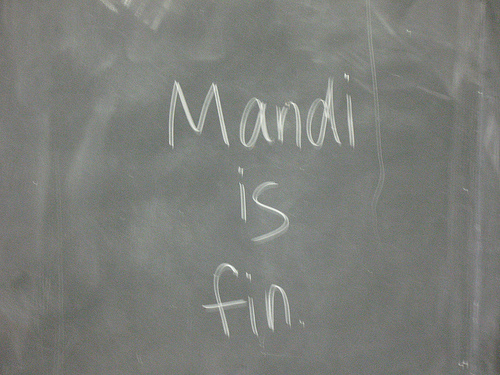 Mandi
is
fin.